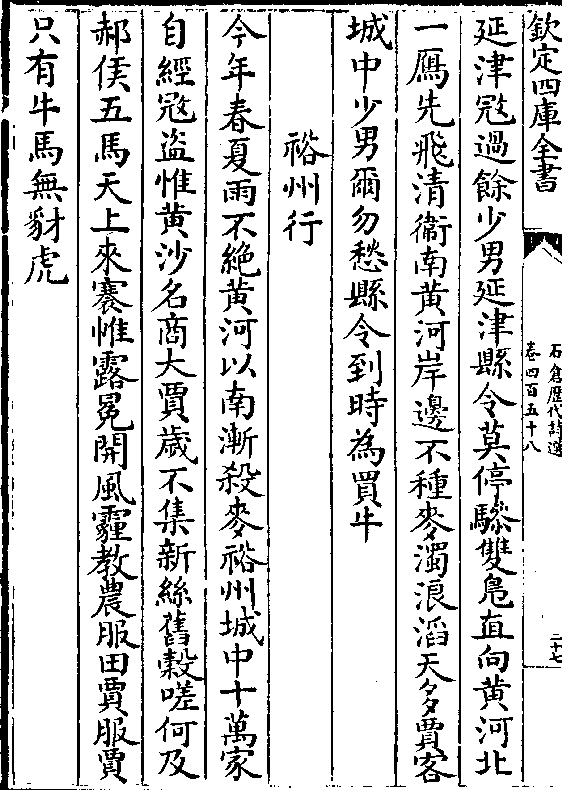 欽定四庫全書
石倉歷代詩選
卷四百五十八
二十七
延津冦過餘少男延津縣令莫停驂雙鳬直向黄河北
一鴈先飛清衞南黄河岸邊不種麥濁浪滔天多賈客
城中少男爾勿愁縣令到時為買牛
裕州行
今年春夏雨不絶黄河以南漸殺麥裕州城中十萬家
自經冦盜惟黄沙名商大賈歲不集新絲舊榖嗟何及
郝侯五馬天上來褰帷露冕開風霾教農服田賈服賈
只有牛馬無豺虎